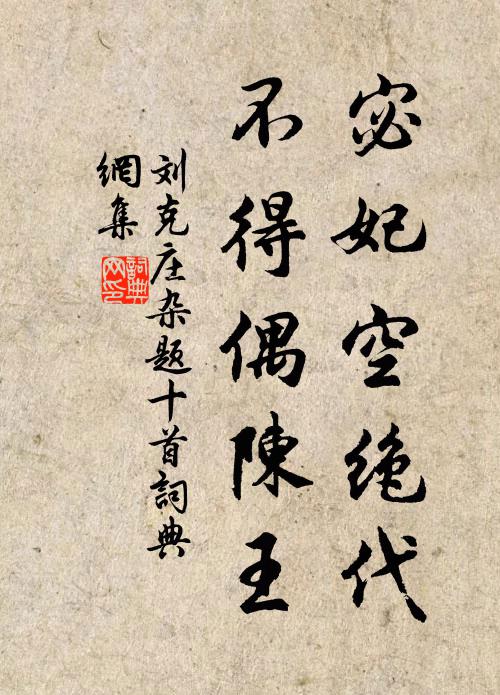 宓妃空绝代
不得偶陳王
刘克庄杂题十首詞典
網集
詞典網印